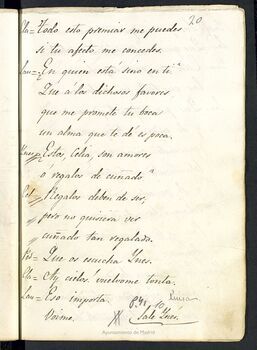 20
Cla= Todo esto premiar me puedes
si tu afecto me concedes.
Lau= ¿En quien está sino en ti?
Que á los dichosos favores
que me promete tu boca
un alma que te dé es poca.
Ynes= Estos, Celia, son amores
ó regalos de cuñado?
Cel= Regalos deben de ser,
pero no quisiera ver
cuñado tan regalado.
Yne= Que os escucha Ynes.
Cla= Ay cielos! vuelvome tonta.
Lau= Eso importa.
Vanse. Sale Ynés.
Ayuntamiento de Madrid